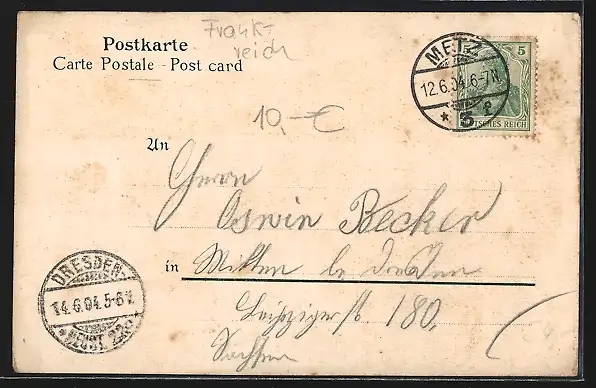 Frank-
reich
Postkarte
Carte Postale - Post card
METZ
12.6.04.6-7N.
* 5 f
5 5
DEUTSCHES REICH
10,-€
An
Herrn
Oswin Becker
in Mikten b/ Dresden
Leipzigerstr 180,
Sachsen
DRESDEN
14.6.04.5-6V.